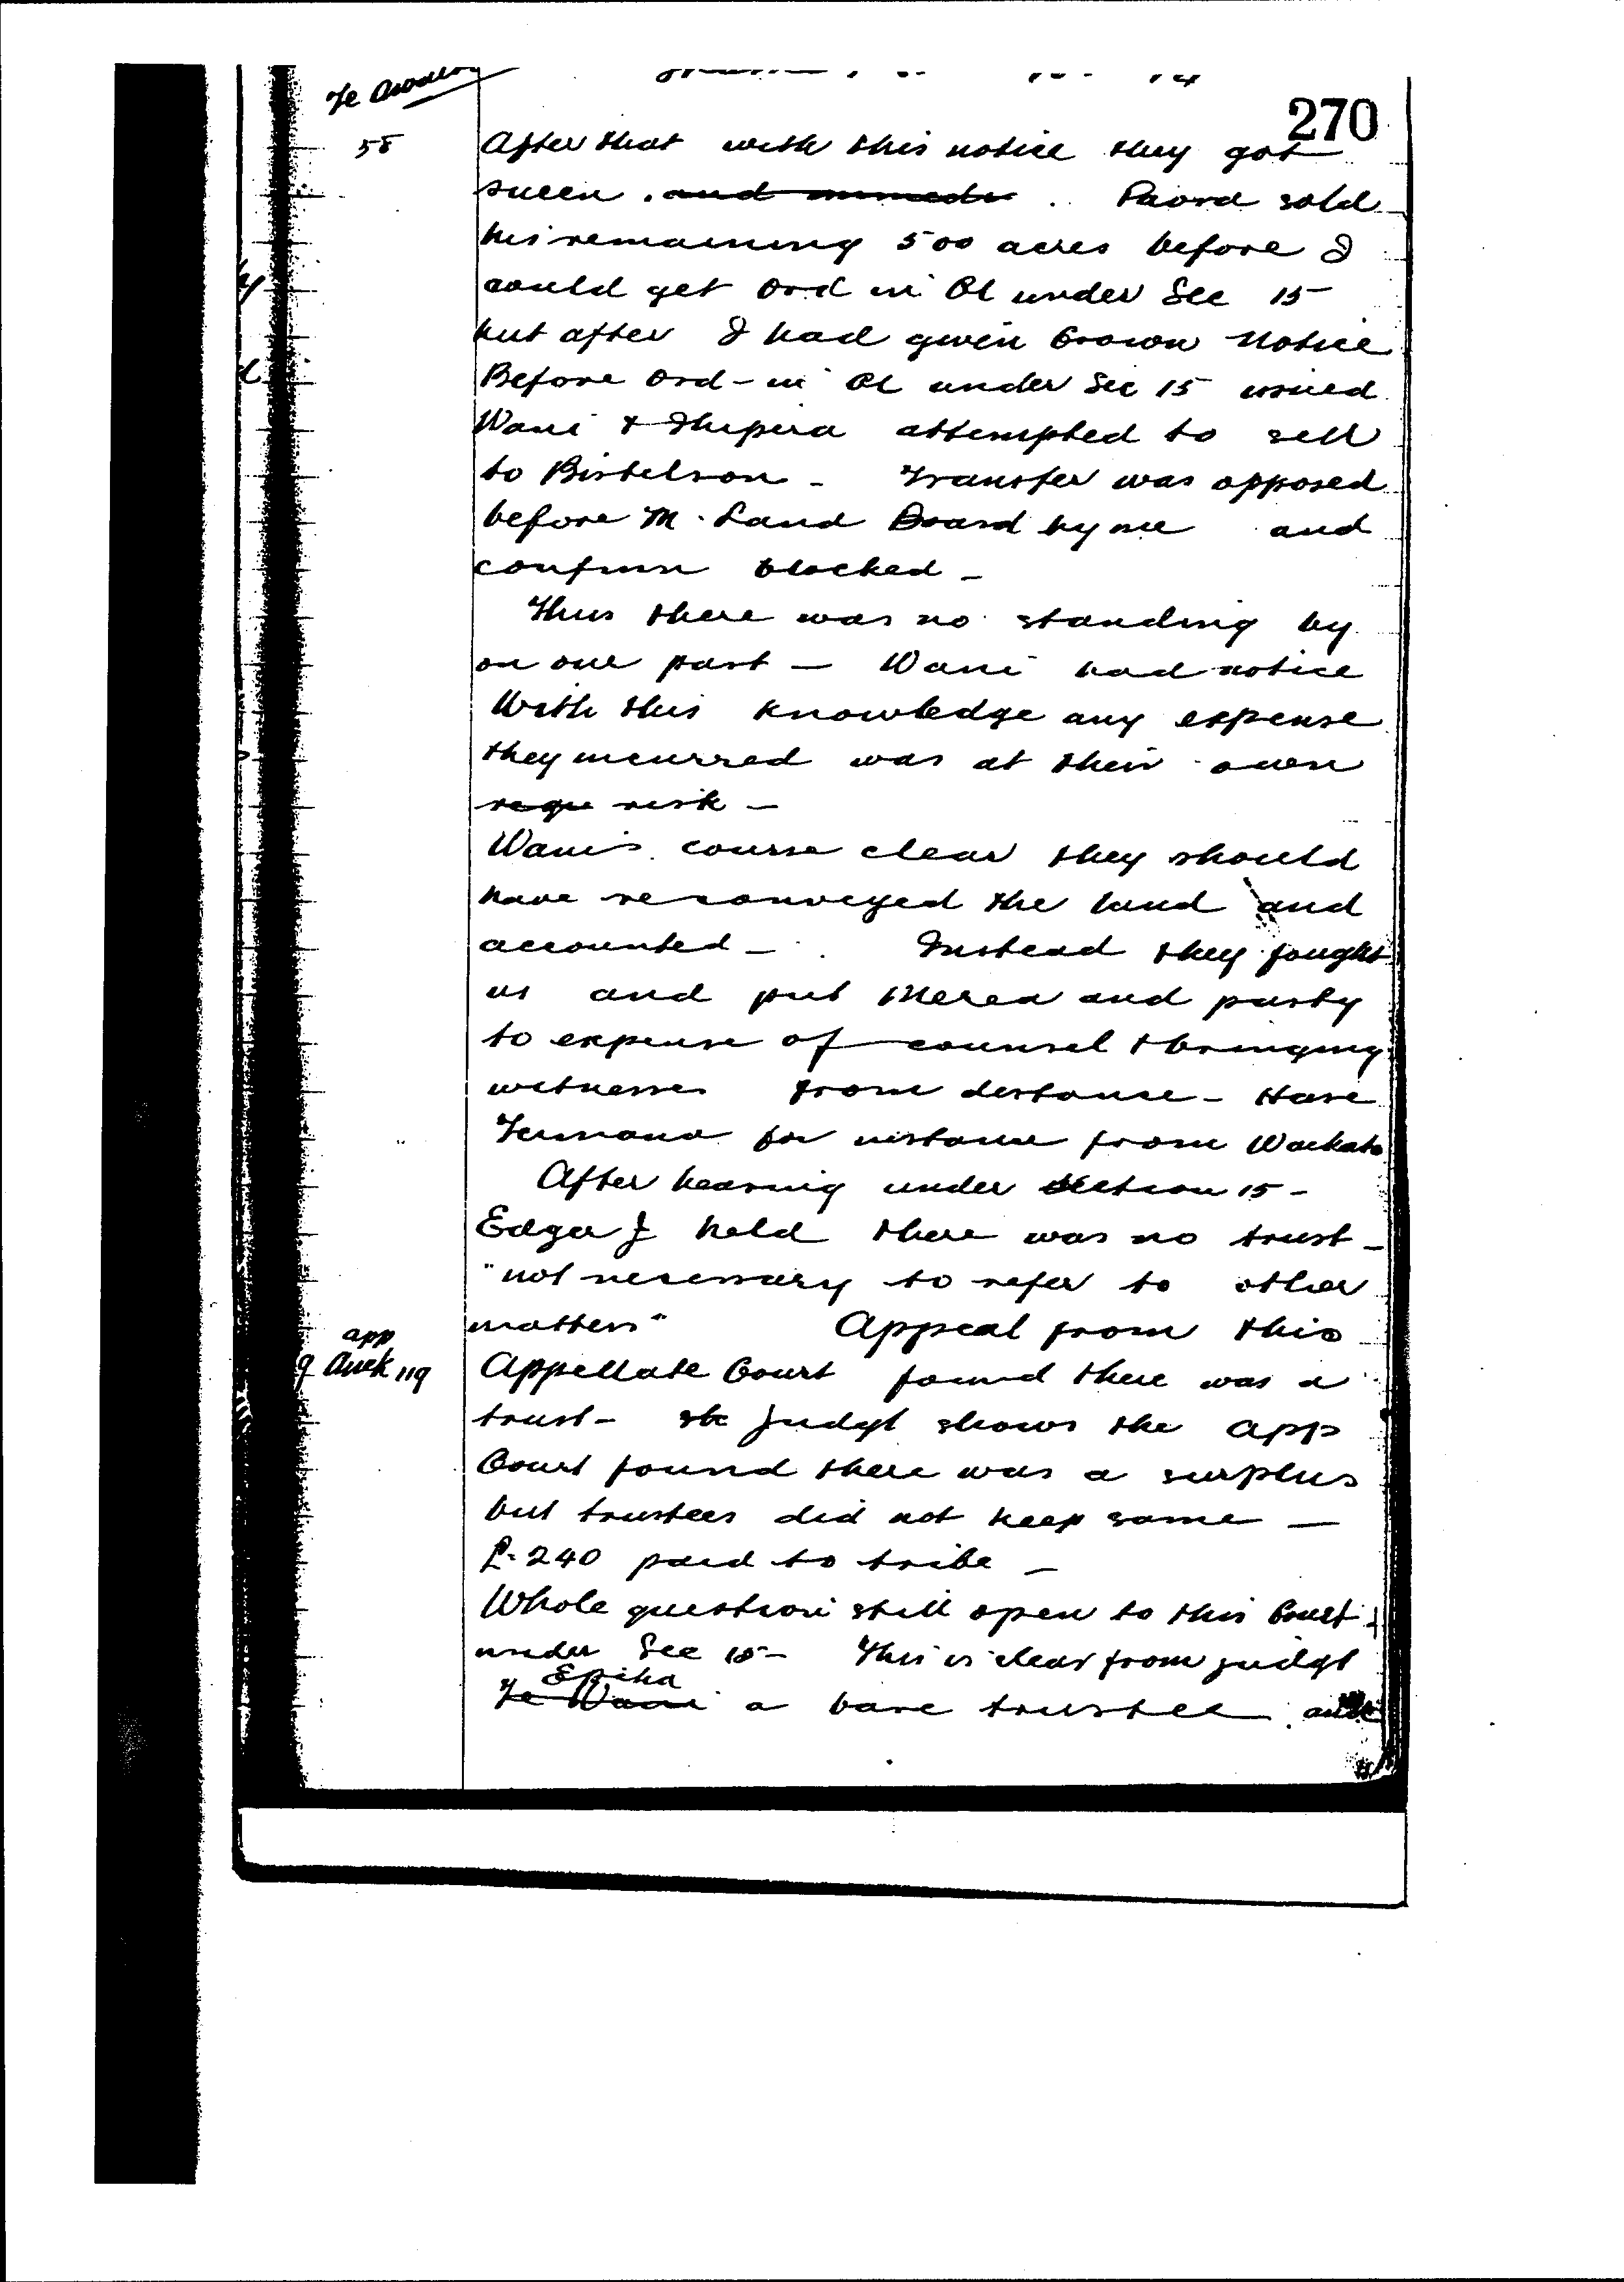 270
58
After that with this notice they got
. and . Paora sold
his remaining 500 acres before I
could get Ord in Cl under Sec 15
but after I had given Crown Notice
Before Ord - in Cl under Sec 15 issued
Wani & attempted to sell
to - Transfer was opposed
before M. Land Board by me and
confirm blocked -
Thus there was no standing by
on our part - Wani had notice
With this knowledge any expense
they incurred was at their own
requ risk -
Wani's course clear they should
have reconveyed the land and
accounted - Instead they fought
us and put Merea and party
to expense of counsel & bringing
witnesses from distance - Hare
for instance from Waikato
After hearing under Section 15 -
Edger J held there was no trust -
"not necessary to refer to other
matters" Appeal from this
app
9 Auck 119
Appellate Court found there was a
trust - Judgt shows the App
Court found there was a surplus
but trustees did not keep same -
£. 240 paid to tribe -
Whole question still open to this Court
under Sec 15 - This is clear from judgt
Epiha
Te Wani a bare trustee and